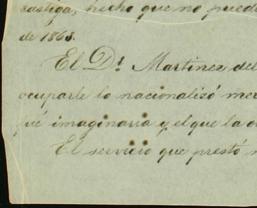 hecho que no puede
de 1863.
El Dr. Martinez del
ocuparle lo nacionalizó mer
fué imaginaria y el que la
El servicio que prestó